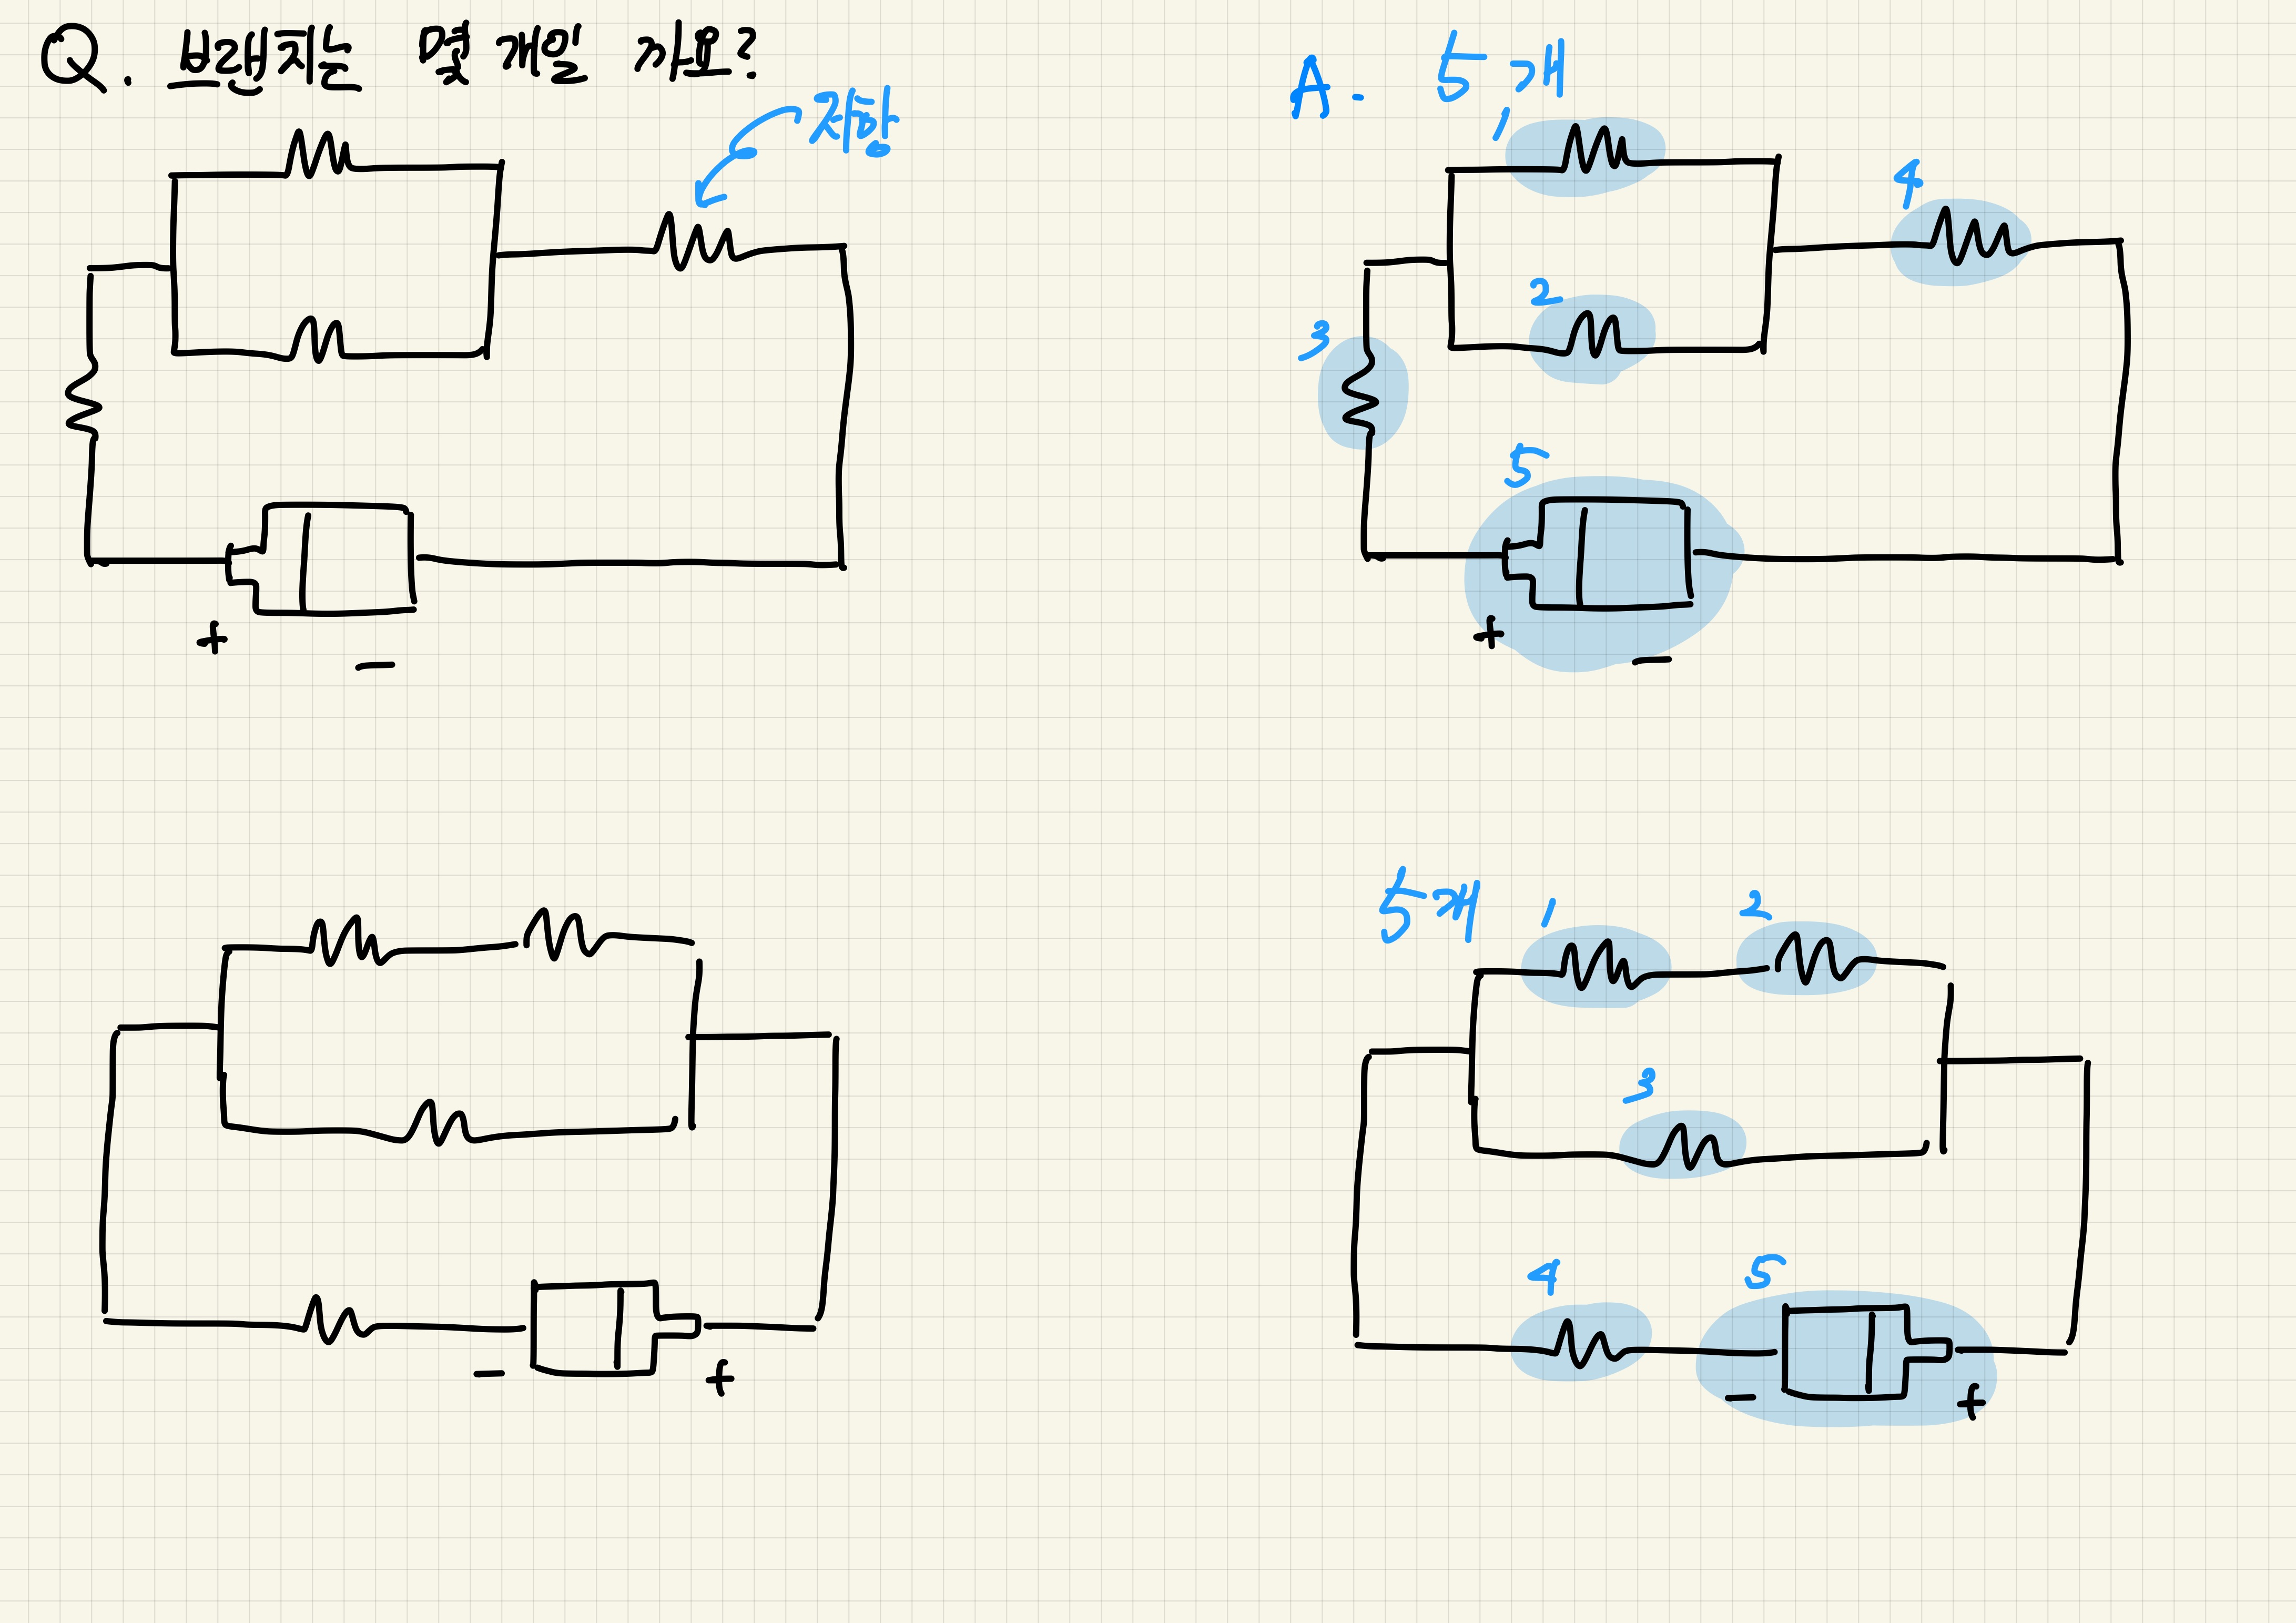 Q. 브랜치는 몇 개일 까요?
저항
+
−
−
+
A. 5개
1
4
2
3
5
+
−
5개
1
2
3
4
5
−
+